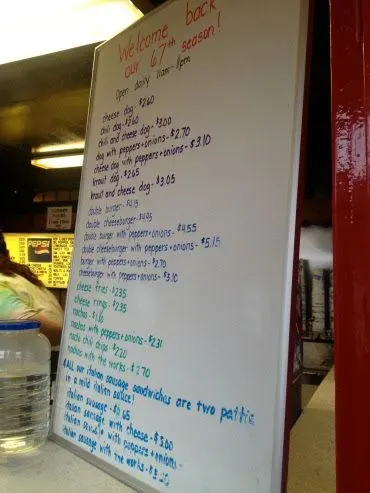 Welcome back
our 67th season!
Open daily 11am-11pm
cheese dog - $2.60
chili dog - $2.60
chili and cheese dog - $3.00
dog with peppers + onions - $2.70
cheese dog with peppers + onions - $3.10
kraut dog - $2.65
kraut and cheese dog - $3.05
double burger -
double cheeseburger - $4.95
double burger with peppers + onions - $4.55
double cheeseburger with peppers + onions - $5.15
burger with peppers + onions - $2.70
cheeseburger with peppers + onions - $3.10
cheese fries - $2.35
cheese rings - $2.35
nachos -
nachos with peppers + onions - $2.31
nacho chili chips - $2.20
nachos with the works - $2.70
All our italian sausage sandwiches are two pattie
in a mild italian sauce!
italian sausage -
italian sausage with cheese - $3.00
italian sausage with peppers + onions -
italian sausage with the works -
PEPSI